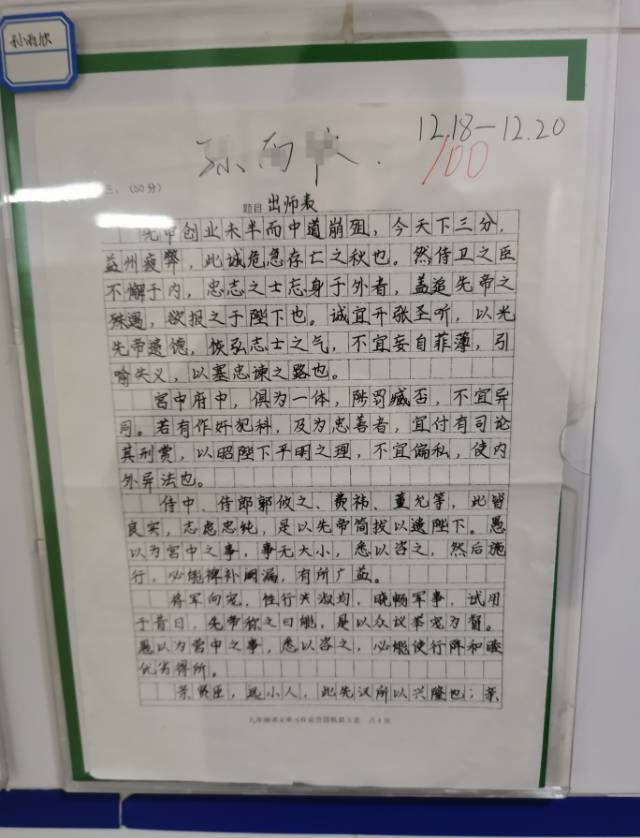 12.18-12.20
100
三、(50分)
题目 出师表
先帝创业未半而中道崩殂，今天下三分，
益州疲弊，此诚危急存亡之秋也。然侍卫之臣
不懈于内，忠志之士忘身于外者，盖追先帝之
殊遇，欲报之于陛下也。诚宜开张圣听，以光
先帝遗德，恢弘志士之气，不宜妄自菲薄，引
喻失义，以塞忠谏之路也。
宫中府中，俱为一体，陟罚臧否，不宜异
同。若有作奸犯科，及为忠善者，宜付有司论
其刑赏，以昭陛下平明之理，不宜偏私，使内
外异法也。
侍中、侍郎郭攸之、费祎、董允等，此皆
良实，志虑忠纯，是以先帝简拔以遗陛下。愚
以为宫中之事，事无大小，悉以咨之，然后施
行，必能裨补阙漏，有所广益。
将军向宠，性行淑均，晓畅军事，试用
于昔日，先帝称之曰能，是以众议举宠为督。
愚以为营中之事，悉以咨之，必能使行阵和睦
优劣得所。
亲贤臣，远小人，此先汉所以兴隆也；亲